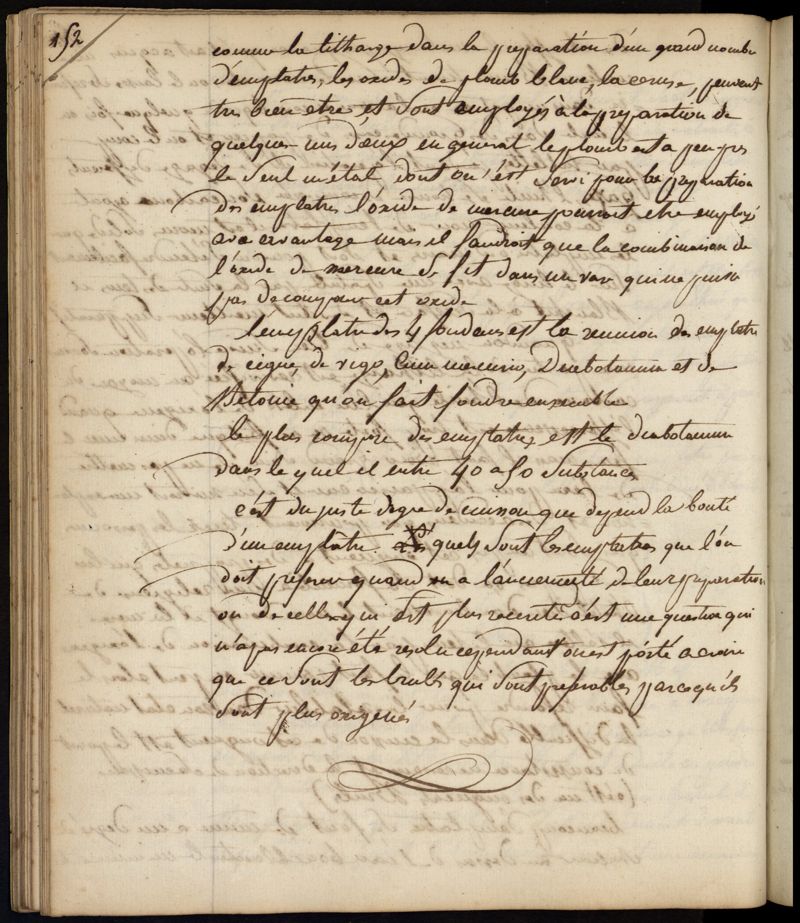 152
comme la litharge dans la preparation d'un grand nombre
d'emplatres, les oxides de plomb blanc, la ceruse, peuvent
tres bien etre et sont employés a la preparation de
quelques uns d'eux en general le plomb est a peu pres
le seul métal dont on s'est servi pour la preparation
des emplatres l'oxide de mercure pourroit etre employé
avec avantage mais il faudroit que la combinaison de
l'oxide de mercure se fit dans un vase qui ne puisse
pas decomposer cet oxide
l'emplatre des 4 fondans est la reunion des emplatre
de cigue, de vigo, cum mercurio, Diabotanum et de
Betoine qu'on fait fondre ensemble
le plus composé des emplatres est le diabotanum
dans le quel il entre 40 a 50 substances
c'est du juste degre de cuisson que depend la bonté
d'un emplatre. quels sont les emplatres que l'on
doit preferer quand on a l'ancienneté de leur preparation
ou de celle qui est plus recente c'est une question qui
n'a pas encore été resolu cependant on est porté a croire
que ce sont les brulés qui sont preferables parcequ'ils
sont plus oxigenés